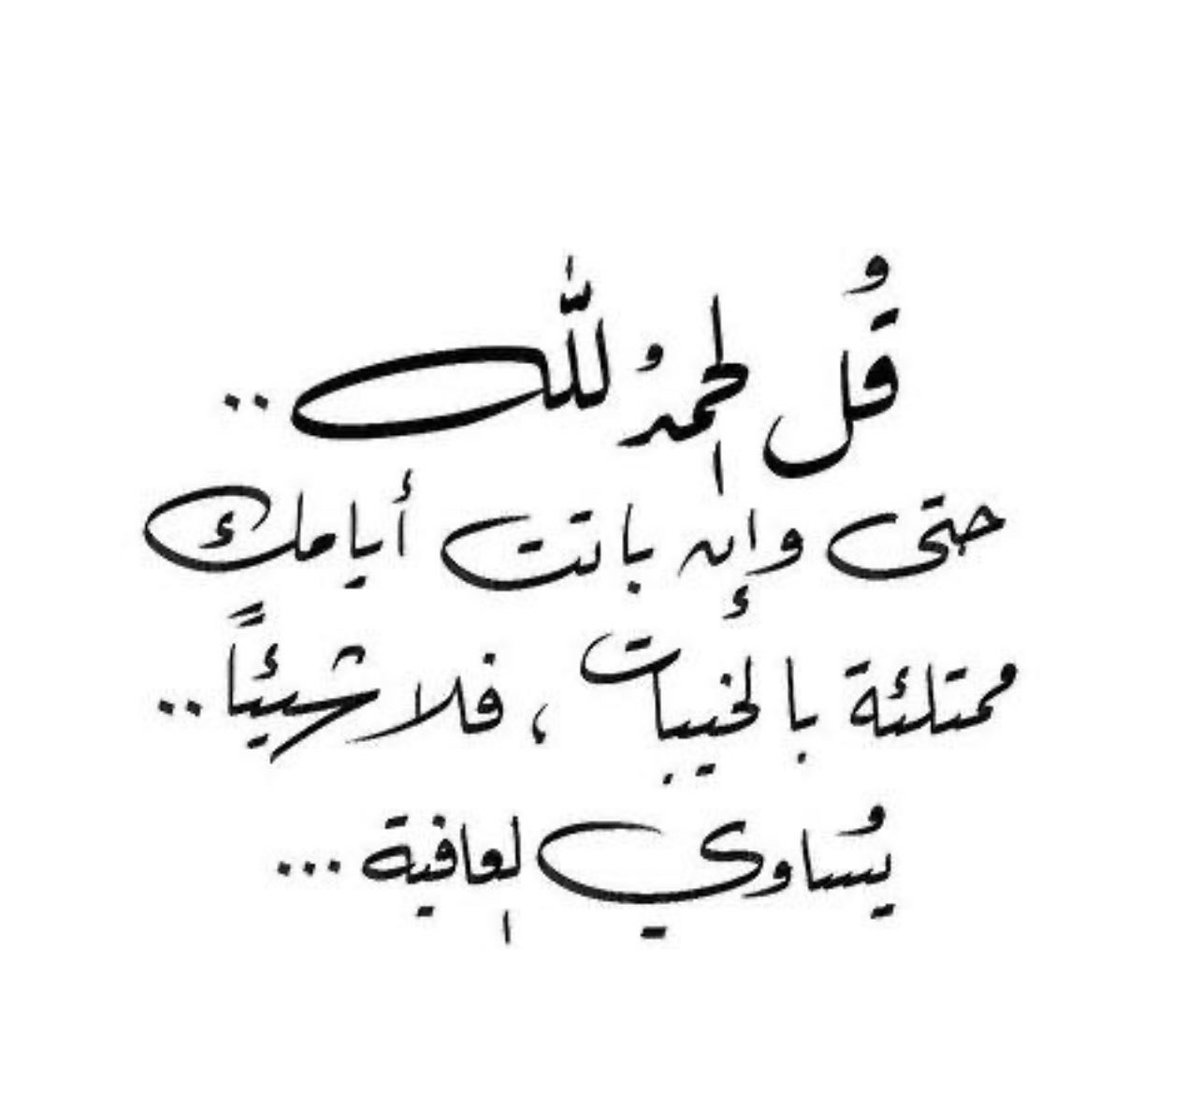 قُل الحمدُ للّٰه ..
حتى وإن باتت أيامك
ممتلئة بالخيبات ، فلا شيئاً ..
يُساوي العافية ...